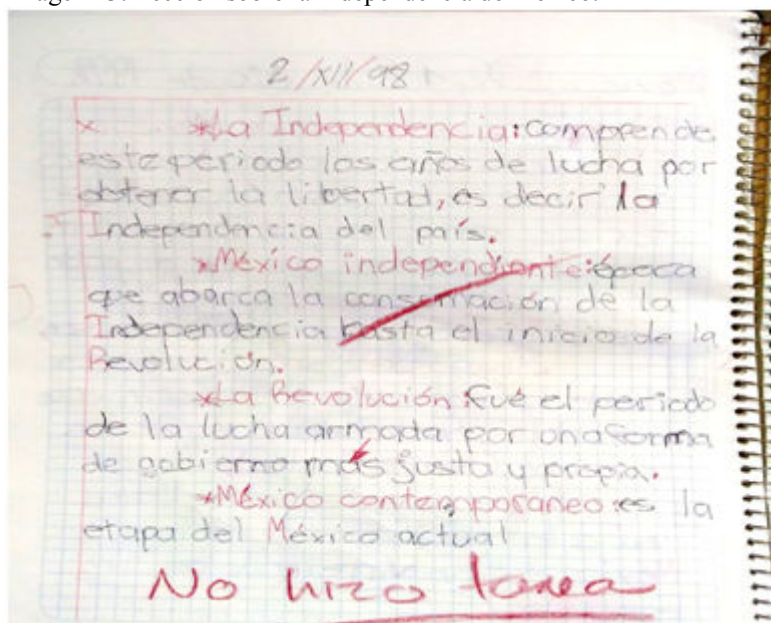 2/XII/98
x *La Independencia: comprende
este periodo los años de lucha por
obtener la libertad, es decir la
Independencia del país.
*México independiente: época
que abarca la consumación de la
Independencia hasta el inicio de la
Revolución.
*La Revolución: fué el periodo
de la lucha armada por una forma
de gobierno más justa y propia.
*México contemporaneo: es la
etapa del México actual
No hizo tarea